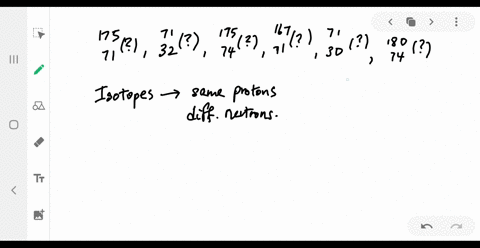 ¹⁷⁵₇₁(?), ⁷¹₃₂(?), ¹⁷⁵₇₄(?), ¹⁶⁷₇₁(?), ⁷¹₃₀(?), ¹⁸⁰₇₄(?)
Isotopes → same protons
diff. neutrons.
Tт